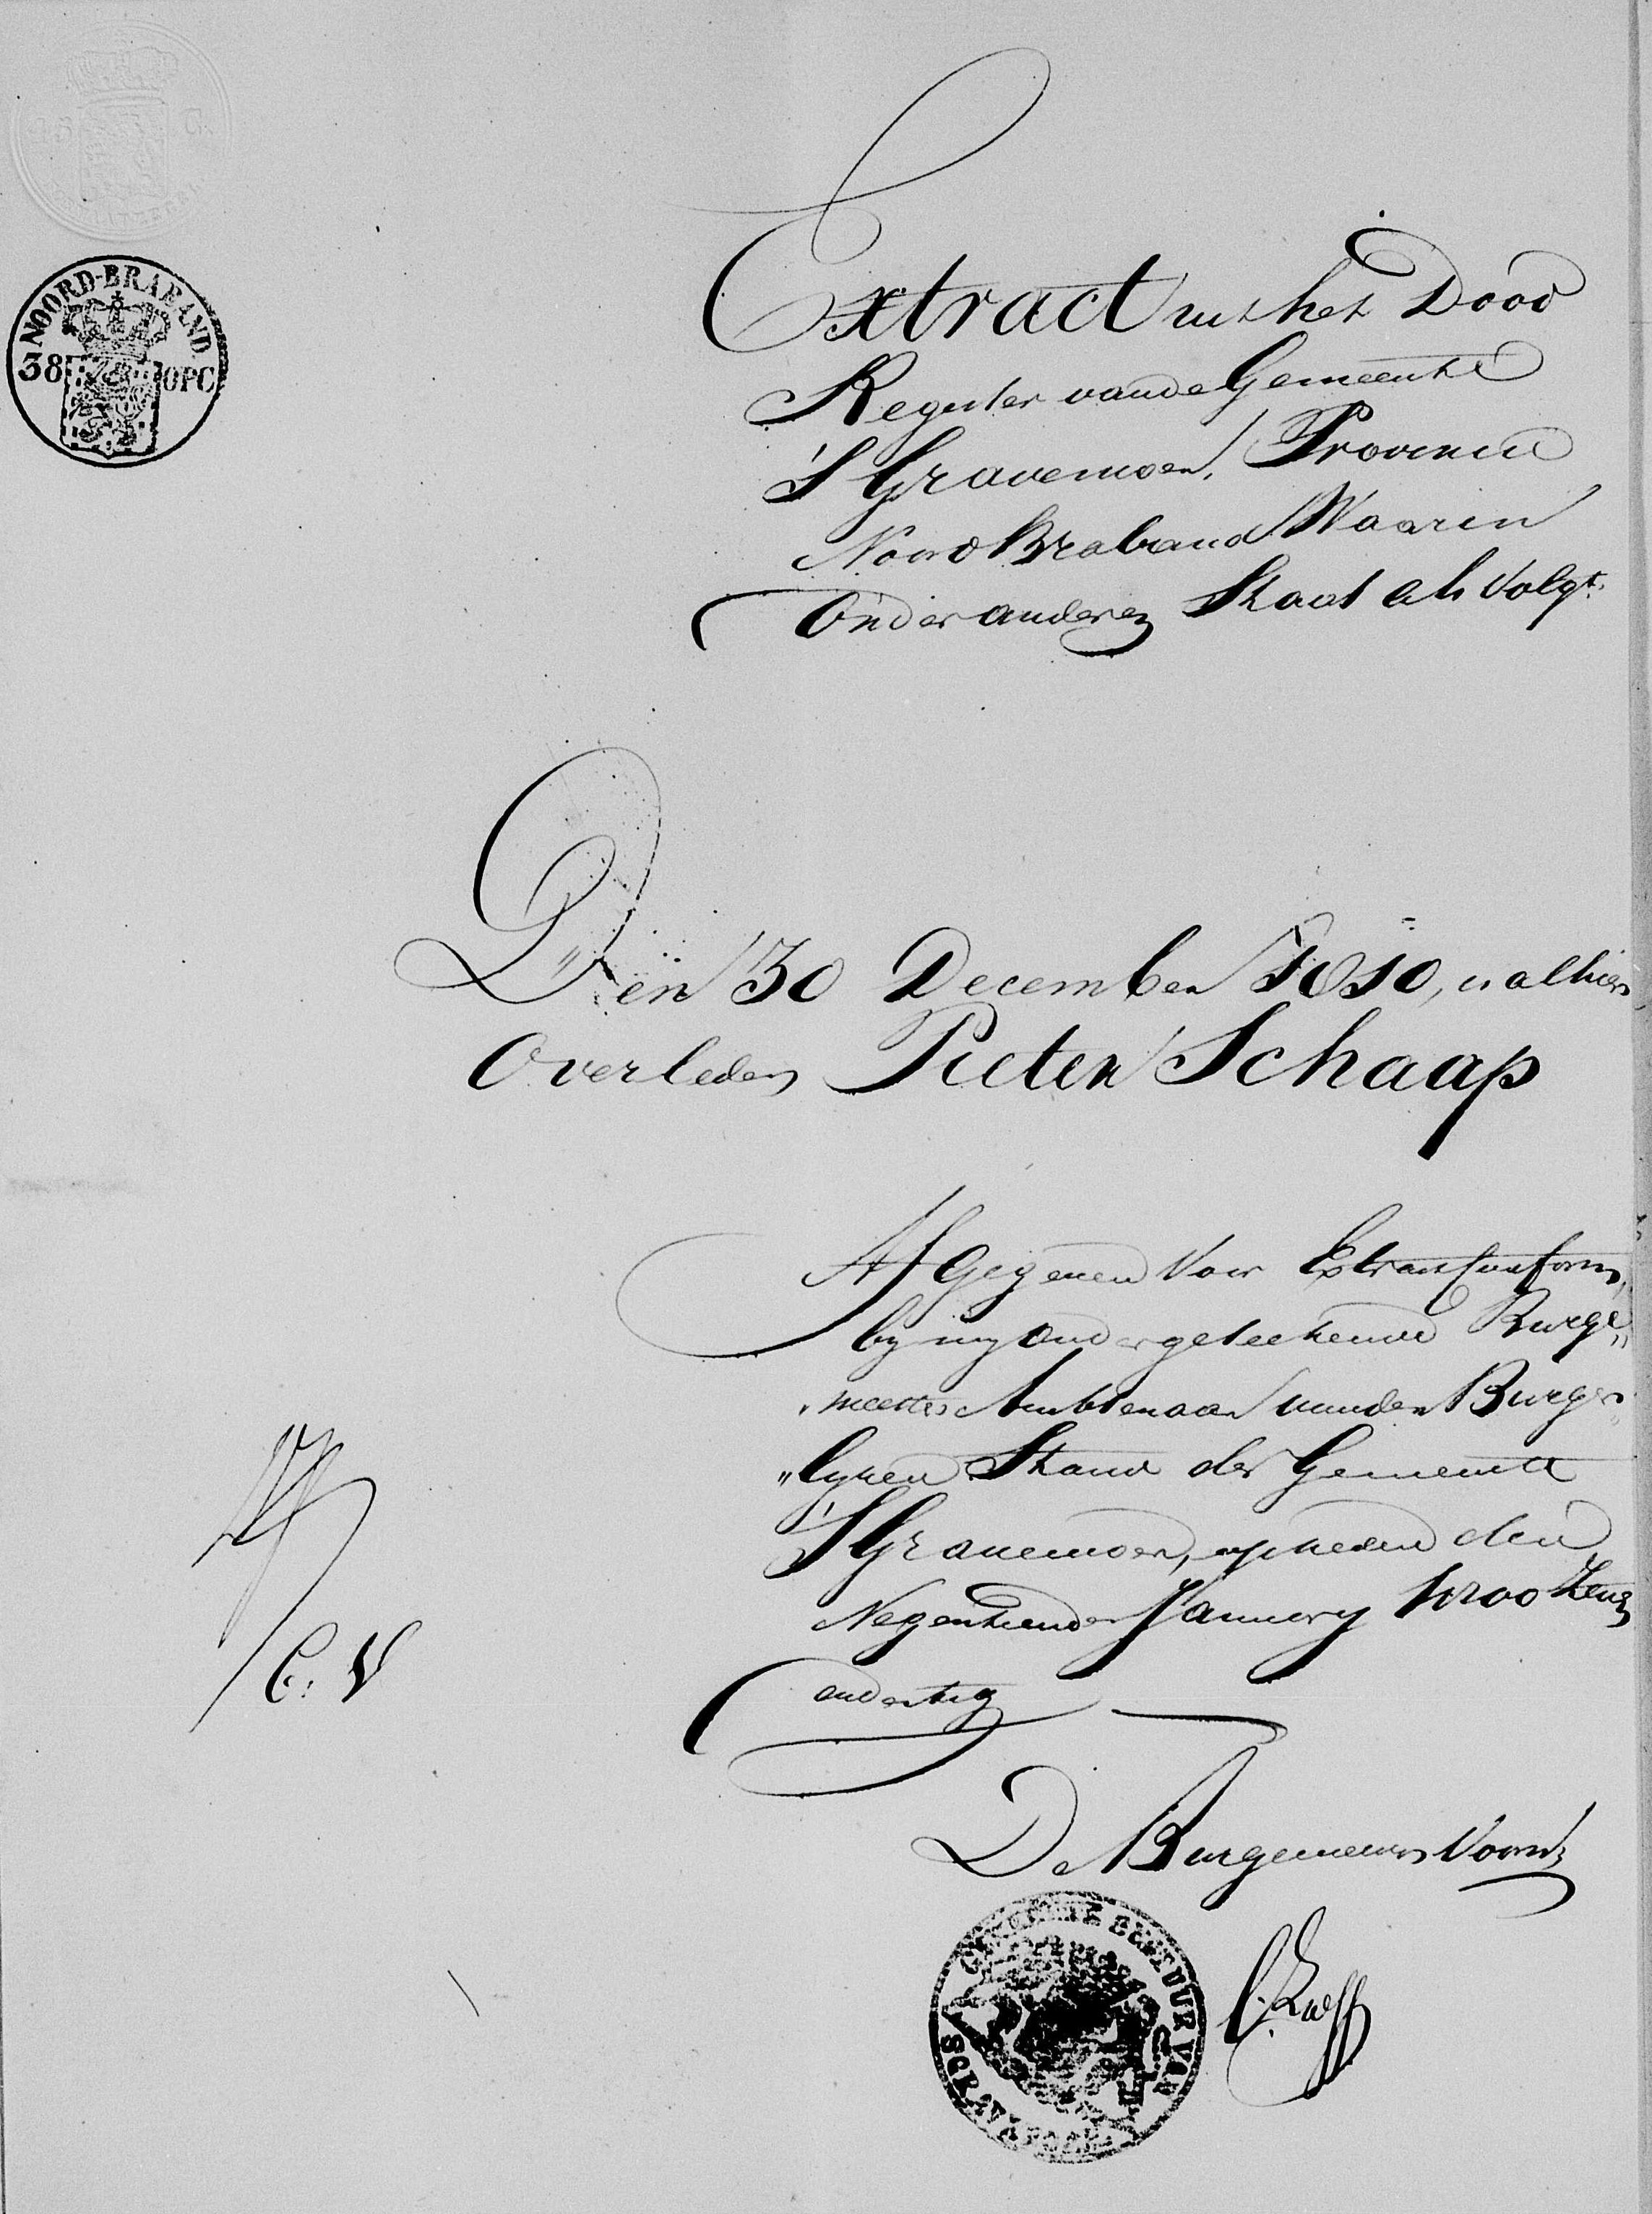 NOORD-BRABAND
38 OPC
Extract uit het Dood
Register van de Gemeente
'S Gravemoer, Provincie
Noord Braband Waarin
Onder anderen Staat als Volgt.
Den 30 December 1810, is alhier
Overleden Pieter Schaap
Afgegeven Voor Extract Conform,
by my Ondergeteekende Burge„
„meester Ambtenaar van den Burger„
„lyken Stand der Gemeente
'S Gravemoer, op heden den
Negentienden January 1800 Zeven
en dertig
C. V
De Burgemeester Voornd
GEMEENTE BESTUUR VAN
SGRAVEMOER